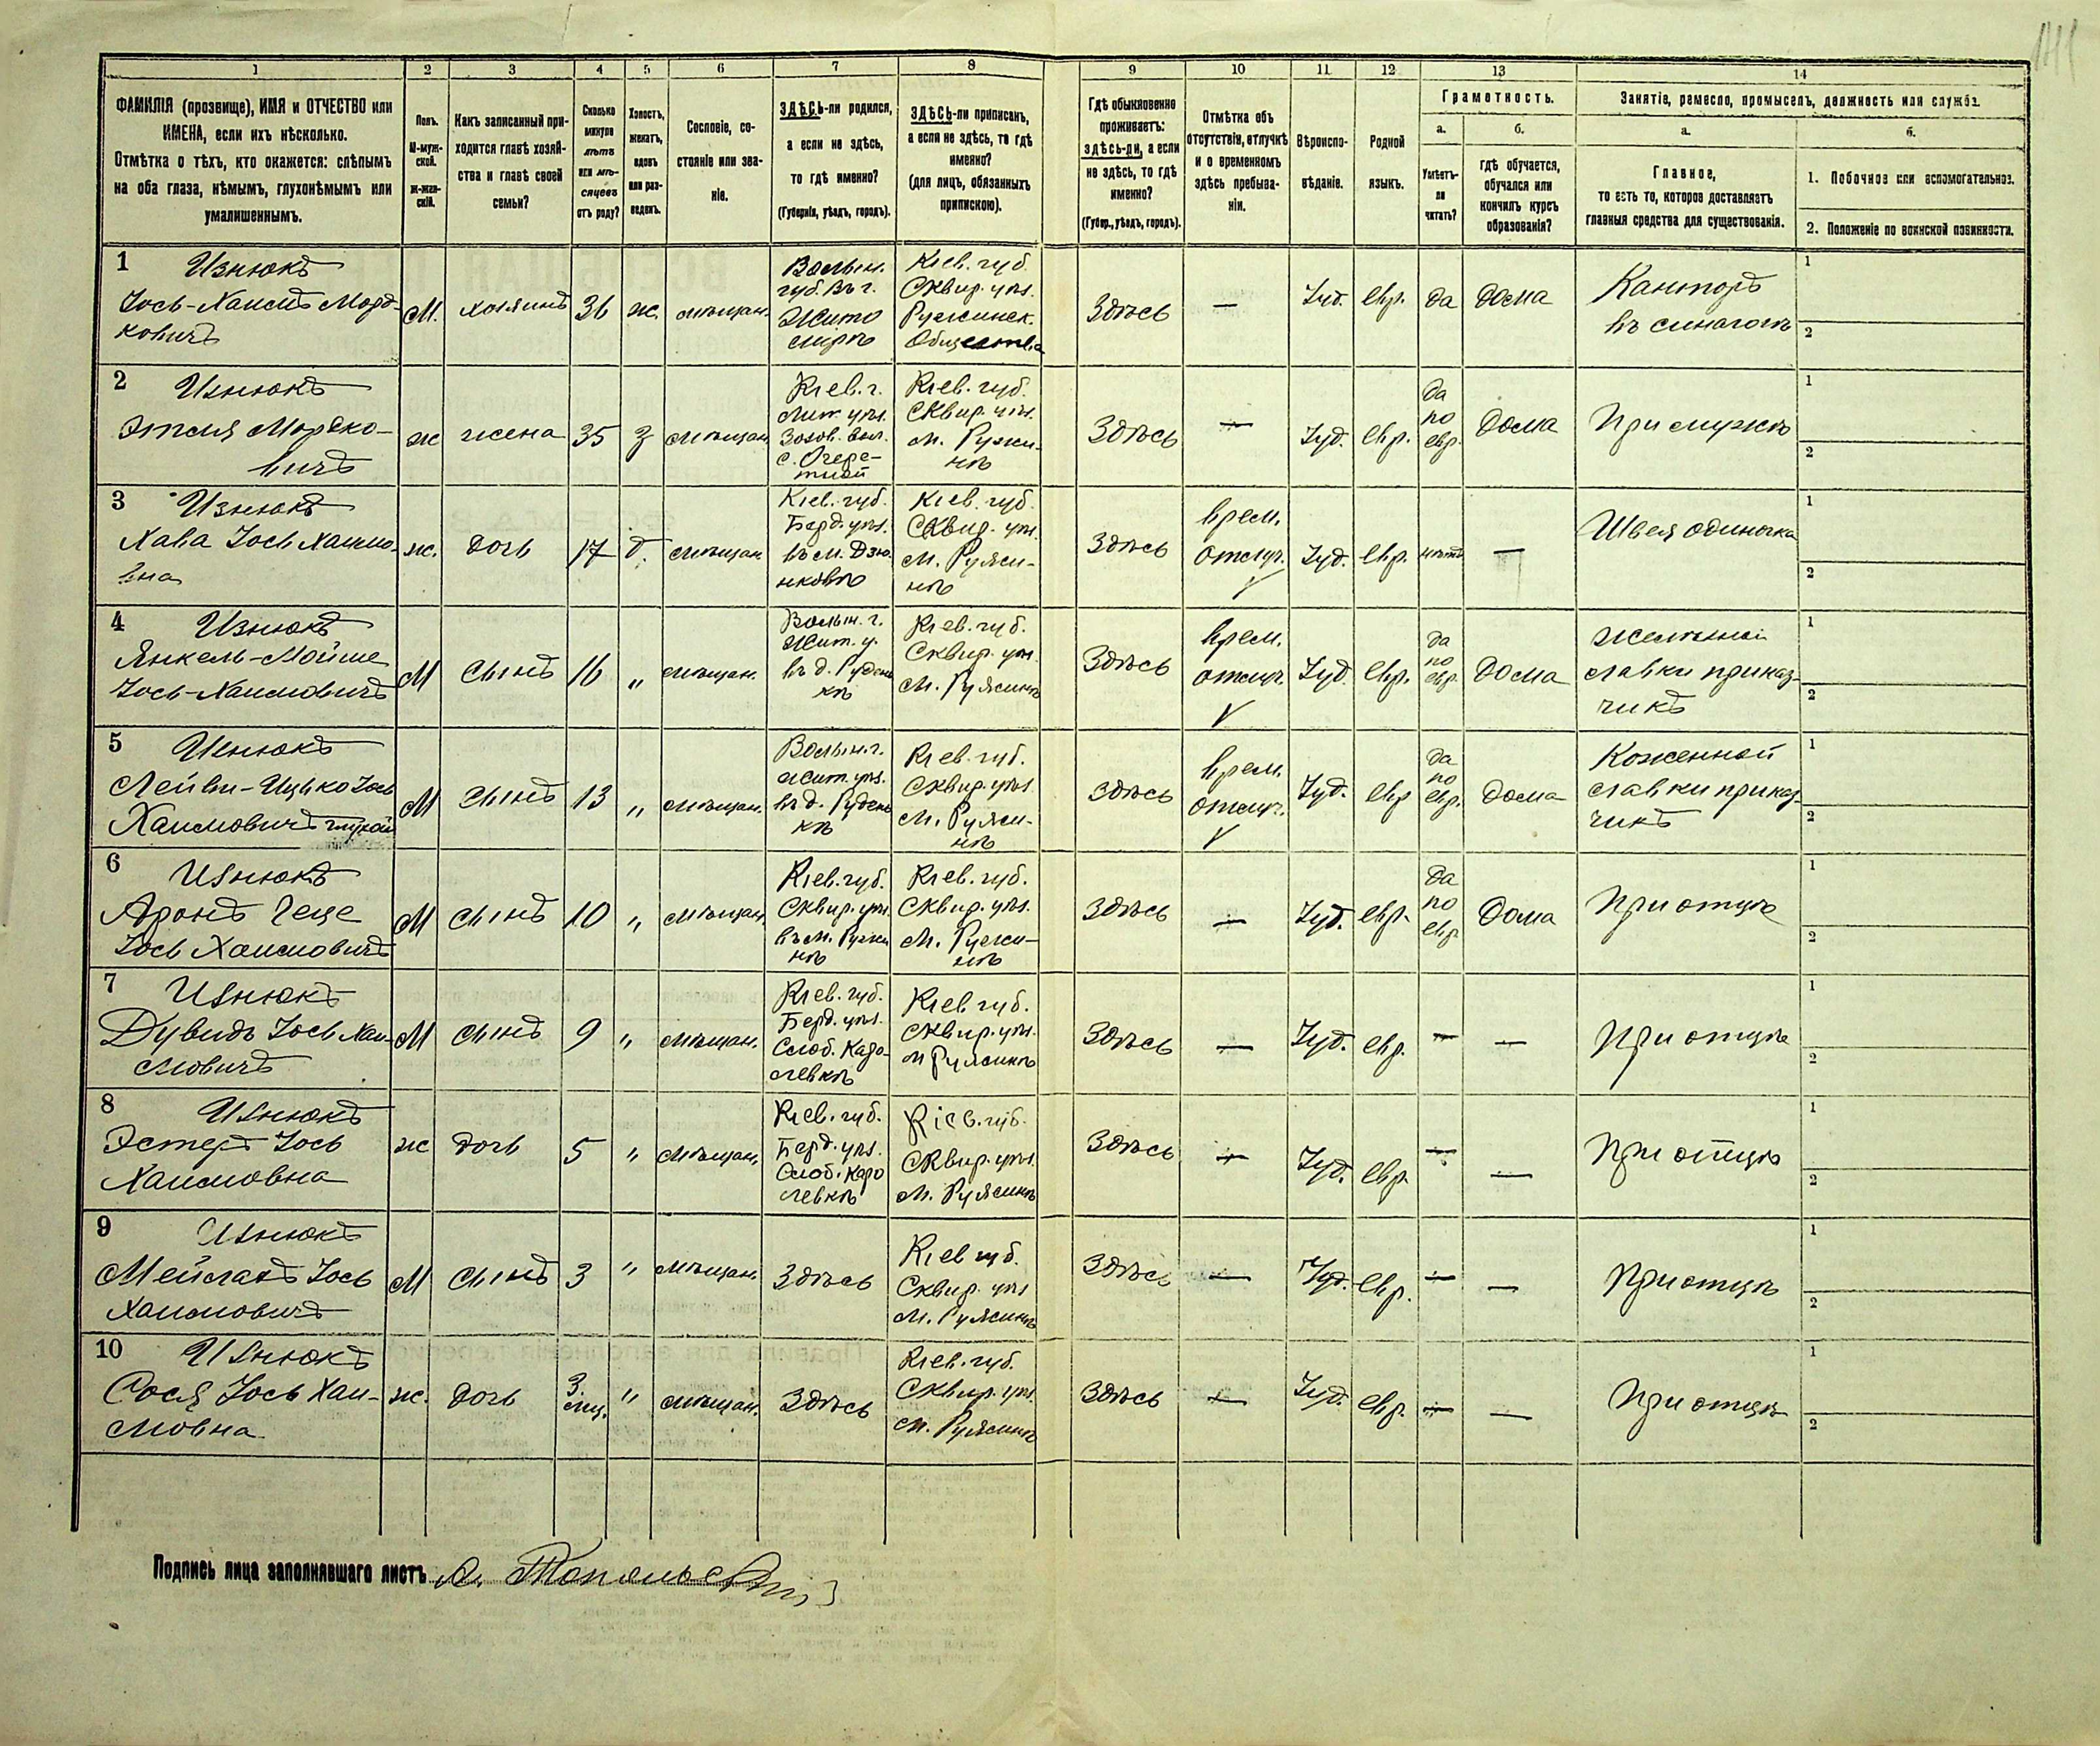 1 2 3 4 5 6 7 8 9 10 11 12 13 14
ФАМИЛІЯ (прозвище), ИМЯ и ОТЧЕСТВО или
ИМЕНА, если ихъ нѣсколько.
Отмѣтка о тѣхъ, кто окажется: слѣпымъ
на оба глаза, нѣмымъ, глухонѣмымъ или
умалишеннымъ.
Полъ.
М-муж-
ской.
ж-жен-
скій.
Какъ записанный при-
ходится главѣ хозяй-
ства и главѣ своей
семьи?
Сколько
минуло
лѣтъ
или мѣ-
сяцевъ
отъ роду?
Холостъ,
женатъ,
вдовъ
или раз-
веденъ.
Сословіе, со-
стояніе или зва-
ніе.
ЗДѢСЬ-ли родился,
а если не здѣсь,
то гдѣ именно?
(Губернія, уѣздъ, городъ).
ЗДѢСЬ-ли приписанъ,
а если не здѣсь, то гдѣ
именно?
(для лицъ, обязанныхъ
припискою).
Гдѣ обыкновенно
проживаетъ:
здѣсь-ли, а если
не здѣсь, то гдѣ
именно?
(Губер., уѣздъ, городъ).
Отмѣтка объ
отсутствіи, отлучкѣ
и о временномъ
здѣсь пребыва-
ніи.
Вѣроиспо-
вѣданіе.
Родной
языкъ.
Грамотность.
а.
Умѣетъ-
ли
читать?
б.
гдѣ обучается,
обучался или
кончилъ курсъ
образованія?
Занятіе, ремесло, промыселъ, должность или служба.
а.
Главное,
то есть то, которое доставляетъ
главныя средства для существованія.
б.
1. Побочное или вспомогательное.
2. Положеніе по воинской повинности.
1 Изнюкъ
Іось-Хаимъ Морд-
ковичъ
М.
хозяинъ
36
ж.
мѣщан.
Волын.
губ. въ г.
Жито
мирѣ
Кіев. губ.
Сквир. уѣз.
Ружинск.
Общества
Здѣсь
—
Іуд.
евр.
да
дома
Канторъ
въ синагогѣ
1
2
2 Изнюкъ
Этля Мордко-
вичъ
ж
жена
35
з
мѣщан.
Кіев. г.
Лип. уѣз.
Зозов. вол.
с. Очере-
тной
Кіев. губ.
Сквир. уѣз.
м. Ружи-
нѣ
Здѣсь
—
Іуд.
евр.
да
по
евр.
дома
При мужѣ
1
2
3 Изнюкъ
Хава Іось Хаимо-
вна
ж.
дочь
17
д.
мѣщан.
Кіев. губ.
Берд. уѣз.
въ м. Дзю-
нковѣ
Кіев. губ.
Сквир. уѣз.
м. Ружи-
нѣ
Здѣсь
врем.
отлуч.
Іуд.
евр.
нѣтъ
—
Швея одиночка
1
2
4 Изнюкъ
Янкель-Мойше
Іось-Хаимовичъ
М
сынъ
16
„
мѣщан.
Волын. г.
Жит. у.
въ д. Рудень
кѣ
Кіев. губ.
Сквир. уѣз.
м. Ружинѣ
Здѣсь
врем.
отлуч.
Іуд.
евр.
да
по
евр.
дома
лавки приказ-
чикъ
1
2
5 Изнюкъ
Лейви-Ицько Іось
Хаимовичъ глухой
М
сынъ
13
„
мѣщан.
Волын. г.
Жит. уѣз.
въ д. Рудень
кѣ
Кіев. губ.
Сквир. уѣз.
м. Ружи-
нѣ
Здѣсь
врем.
отлуч.
Іуд.
евр
да
по
евр.
дома
Коженной
лавки приказ-
чикъ
1
2
6 Изнюкъ
Аронъ
Іось Хаимовичъ
М
сынъ
10
„
мѣщан.
Кіев. губ.
Сквир. уѣз.
въ м. Ружи
нѣ
Кіев. губ.
Сквир. уѣз.
м. Ружи-
нѣ
Здѣсь
—
Іуд.
евр.
да
по
евр
дома
При отцѣ
1
2
7 Изнюкъ
Дувидъ Іось Хаи-
мовичъ
М
сынъ
9
„
мѣщан.
Кіев. губ.
Берд. уѣз.
Слоб. Каро-
левкѣ
Кіев. губ.
Сквир. уѣз.
м Ружинѣ
Здѣсь
—
Іуд.
евр.
—
—
При отцѣ
1
2
8 Изнюкъ
Эстеръ Іось
Хаимовна
ж
дочь
5
„
мѣщан.
Кіев. губ.
Берд. уѣз.
Слоб. Каро
левкѣ
Кіев. губ.
Сквир. уѣз.
м. Ружинѣ
Здѣсь
—
Іуд.
евр.
—
—
При отцѣ
1
2
9 Изнюкъ
Мейлахъ Іось
Хаимовичъ
М
сынъ
3
„
мѣщан.
Здѣсь
Кіев губ.
Сквир. уѣз
м. Ружинѣ
Здѣсь
—
Іуд.
евр.
—
—
При отцѣ
1
2
10 Изнюкъ
Рося Іось Хаи-
мовна
ж.
дочь
3
мц.
„
мѣщан.
Здѣсь
Кіев. губ.
Сквир. уѣз.
м. Ружинѣ
Здѣсь
—
Іуд.
евр.
—
—
При отцѣ
1
2
Подпись лица заполнявшаго листъ